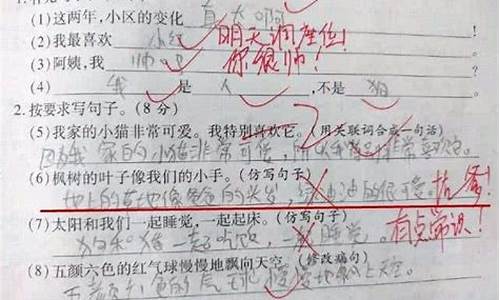 (1)这两年,小区的变化真大啊
(2)我最喜欢小红 明天调座位!
(3)阿姨,我帅吧 你很帅!
(4)我是人,不是狗
2.按要求写句子。(8分)
(5)我家的小猫非常可爱。我特别喜欢它。(用关联词合成一句话)
因为我家的小猫非常可爱,所以我特别非常喜欢它。
(6)枫树的叶子像我们的小手。(仿写句子)
地上的草地像爸爸的头发,绿油油的很可爱。找爹!
(7)太阳和我们一起睡觉,一起起床。(仿写句子)
狗和猪一起吃饭,一起睡觉。有点常识!
(8)五颜六色的红气球慢慢地飘向天空。(修改病句)
五颜六色的气球慢慢地飘上天空。